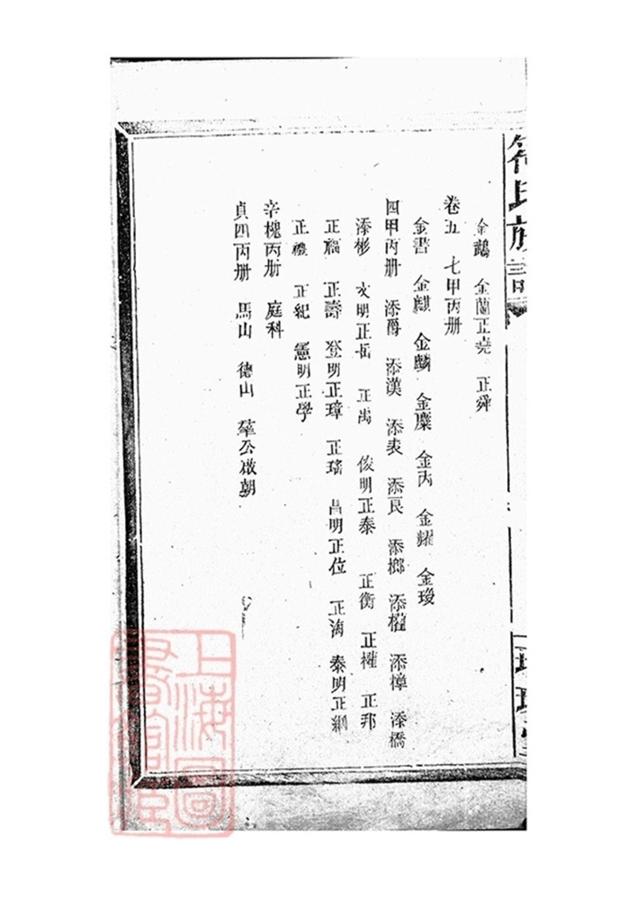 符氏族譜
金鵡 金蘭正堯 正舜
卷五 七甲丙册
金書 金麒 金麟 金麋 金丙 金耀 金璲
四甲丙册 添爵 添漢 添表 添艮 添榔 添櫂 添樟 添橋
添彬 文明正岳 正禹 俊明正泰 正衡 正權 正邦
正福 正壽 登明正璋 正瑤 昌明正位 正海 泰明正
正禮 正紀 憲明正學
辛槐丙册 庭科
貞四丙册 馬山 德山 肇公啟朝
上海圖書館藏